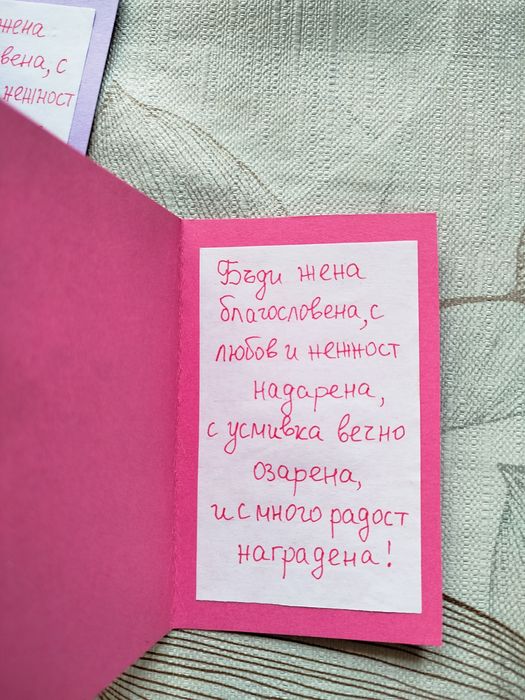 жена
вена, с
нежност
Бъди жена
благословена, с
любов и нежност
надарена,
с усмивка вечно
озарена,
и с много радост
наградена!